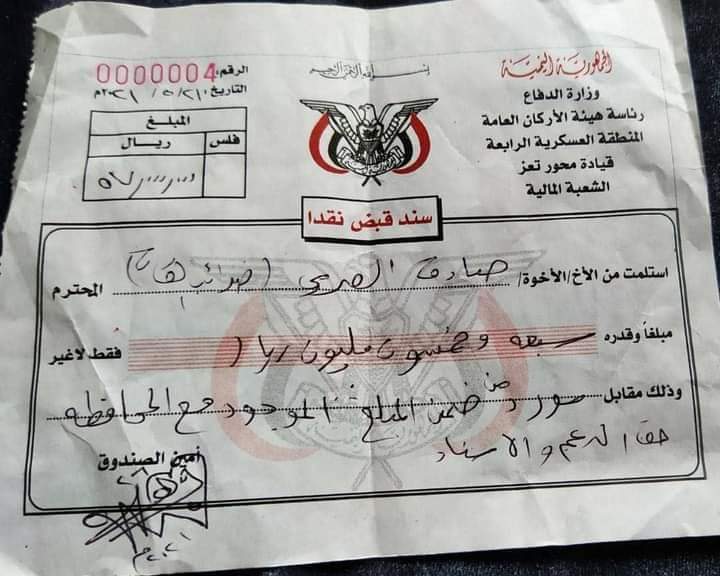 الجمهورية اليمنية
وزارة الدفاع
رئاسة هيئة الأركان العامة
المنطقة العسكرية الرابعة
قيادة محور تعز
الشعبة المالية
بسم الله الرحمن الرحيم
الرقم: 0000004
التاريخ: ٢١/٥/٢٠٢١م
المبلغ
ريال فلس
سند قبض نقدا
استلمت من الأخ/الأخوة/ صادق (ضرائب القات) المحترم
مبلغاً وقدره سبعه وخمسون مليون ريال فقط لاغير
وذلك مقابل من ضمن المبلغ الموجود مع المحافظه
حق الدعم والاسناد
أمين الصندوق